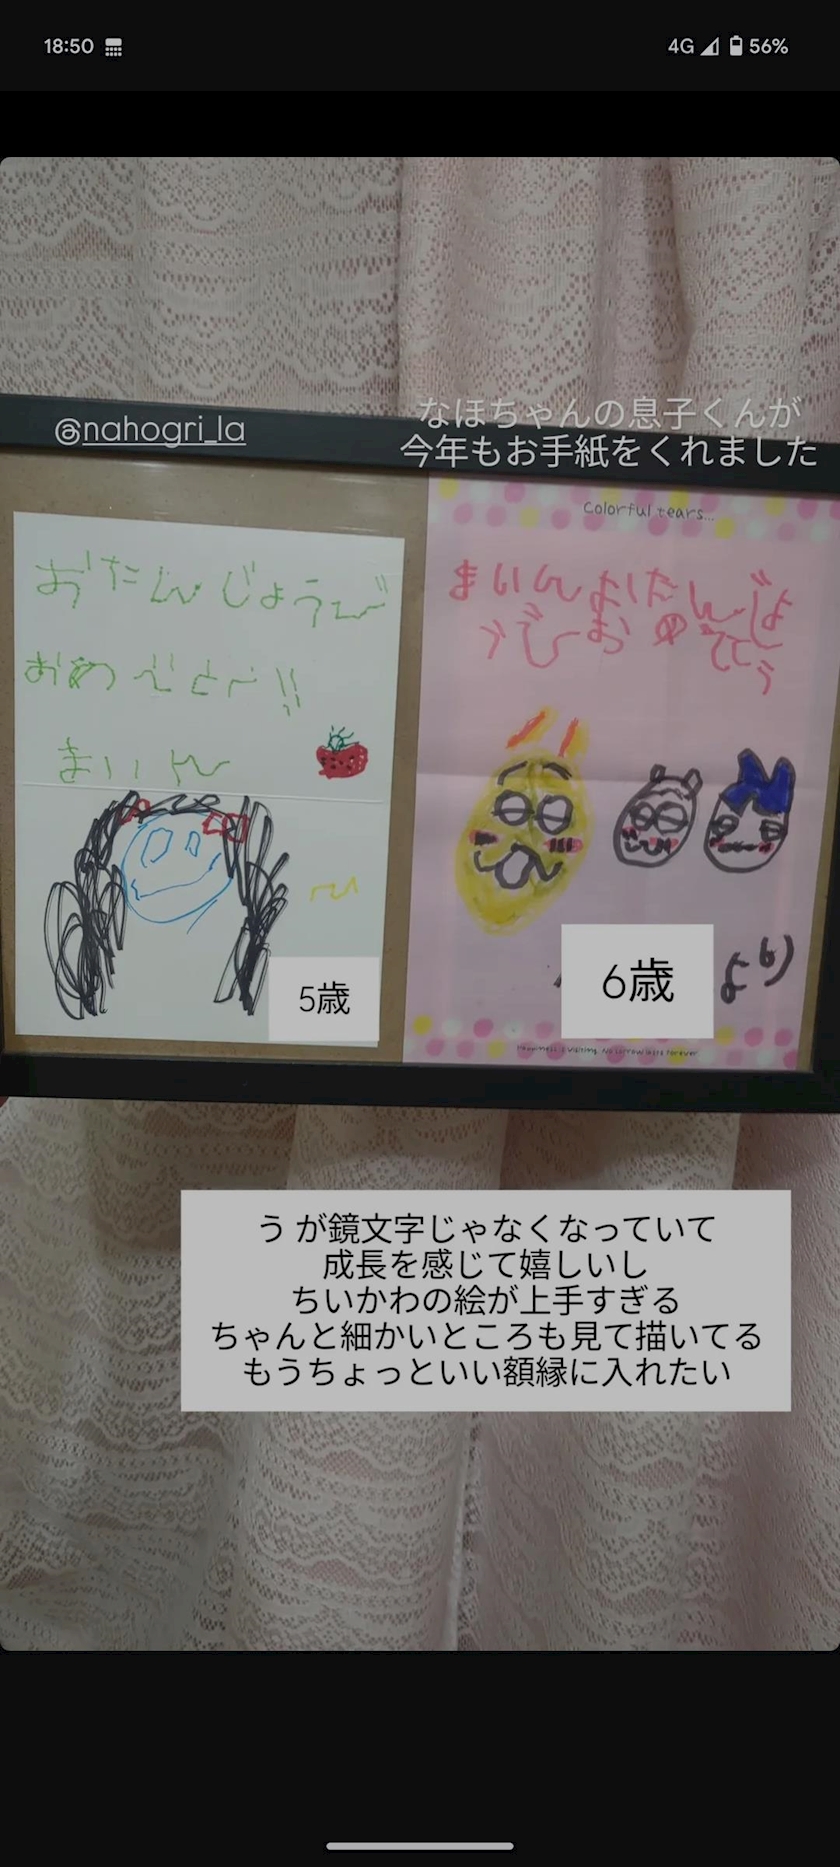 18:50
4G 56%
@nahogri_la
なほちゃんの息子くんが
今年もお手紙をくれました
おたんじょうび
おめでとー!!
まいん
5歳
Colorful tears...
まいんおたんじょ
う
6歳
より
う が鏡文字じゃなくなっていて
成長を感じて嬉しいし
ちいかわの絵が上手すぎる
ちゃんと細かいところも見て描いてる
もうちょっといい額縁に入れたい